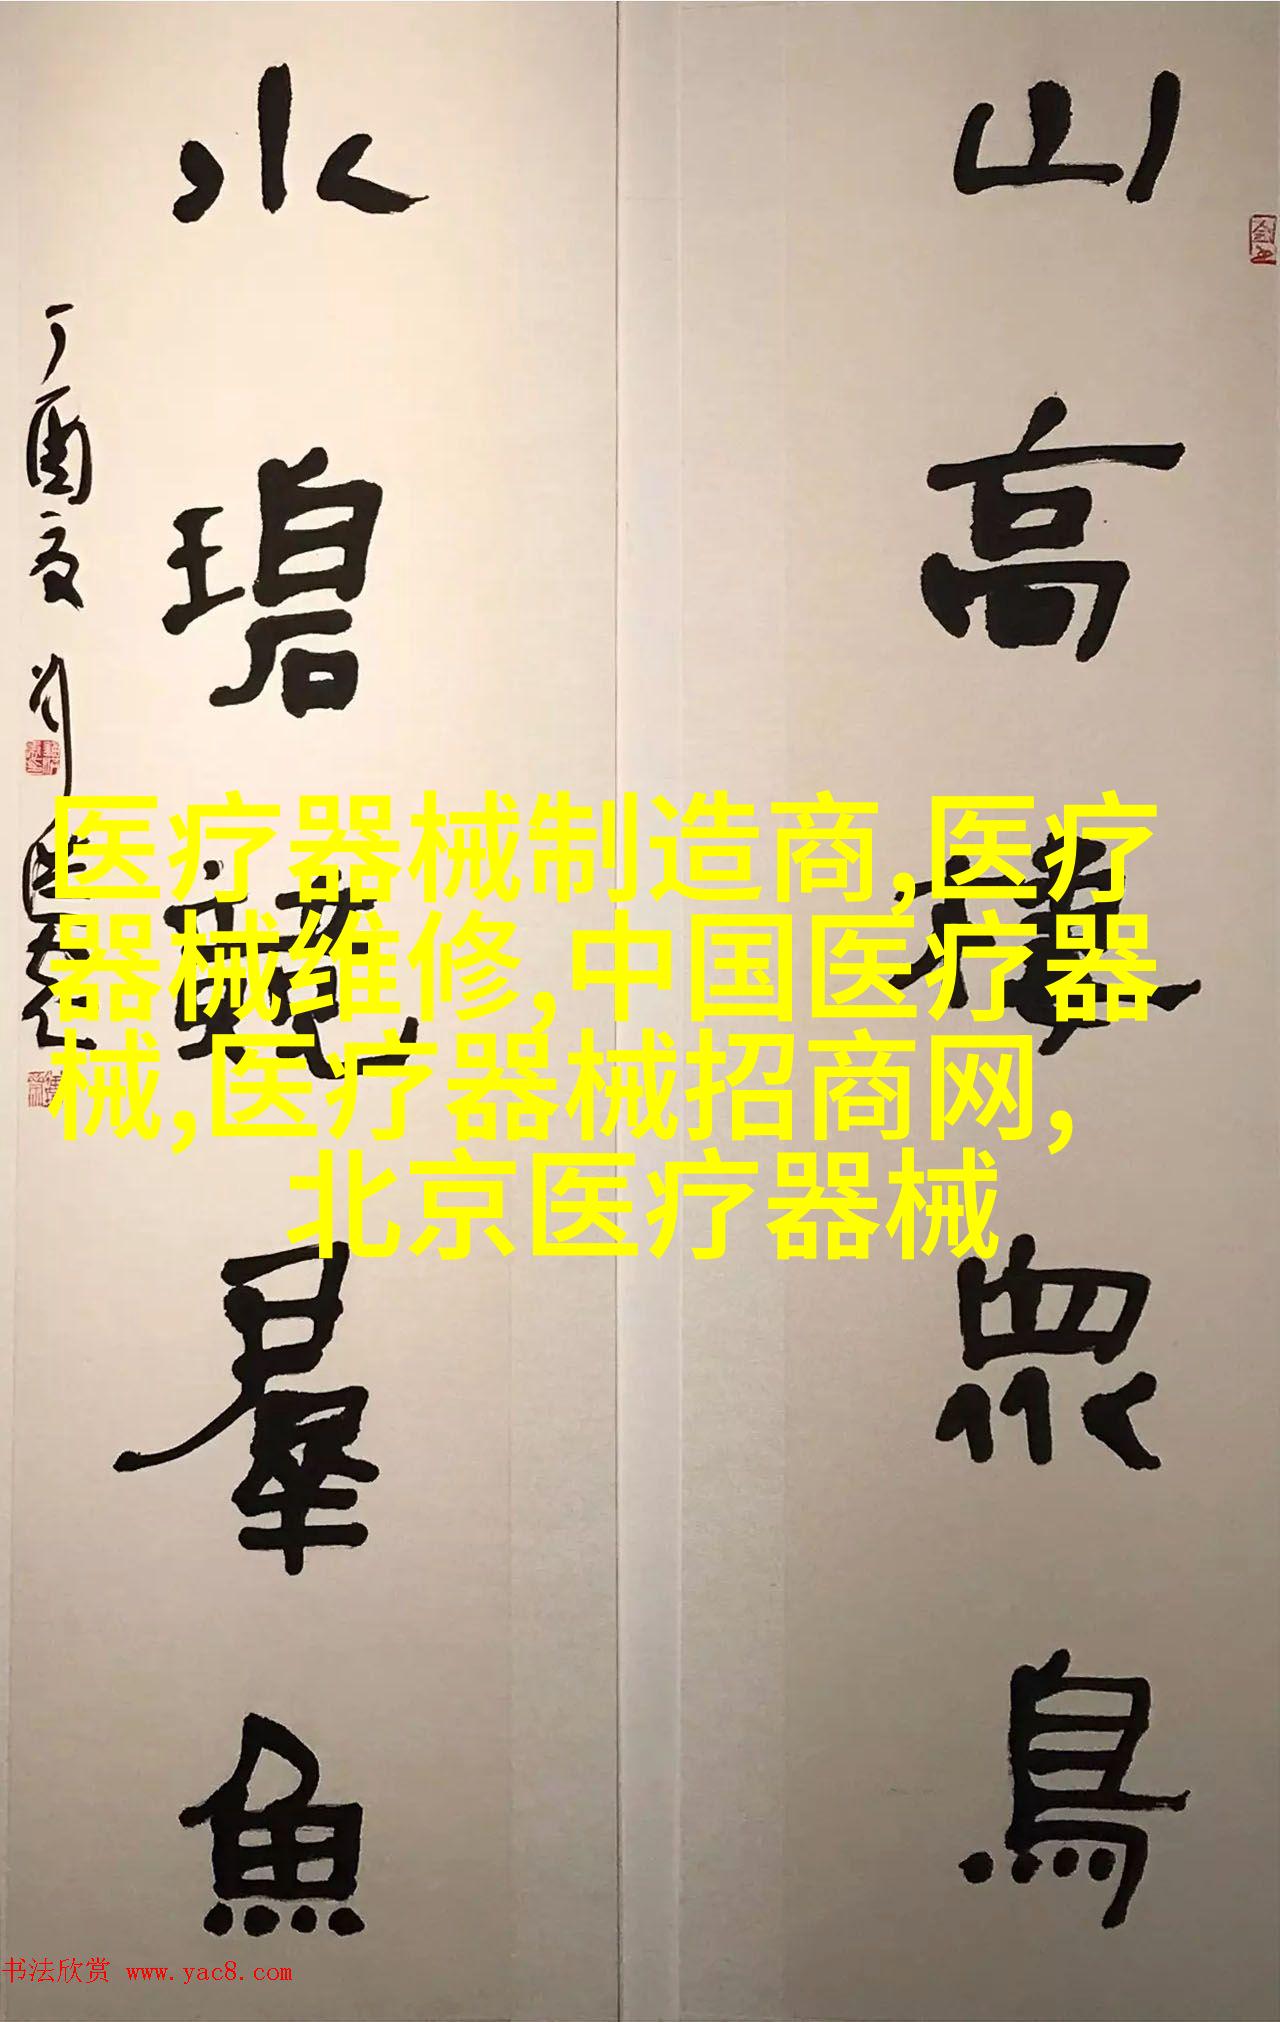 山高棲眾鳥
水碧藏羣魚
丁酉夏 刘
医疗器械制造商,医疗
器械维修,中国医疗器
械,医疗器械招商网,
北京医疗器械
书法欣赏 www.yac8.com